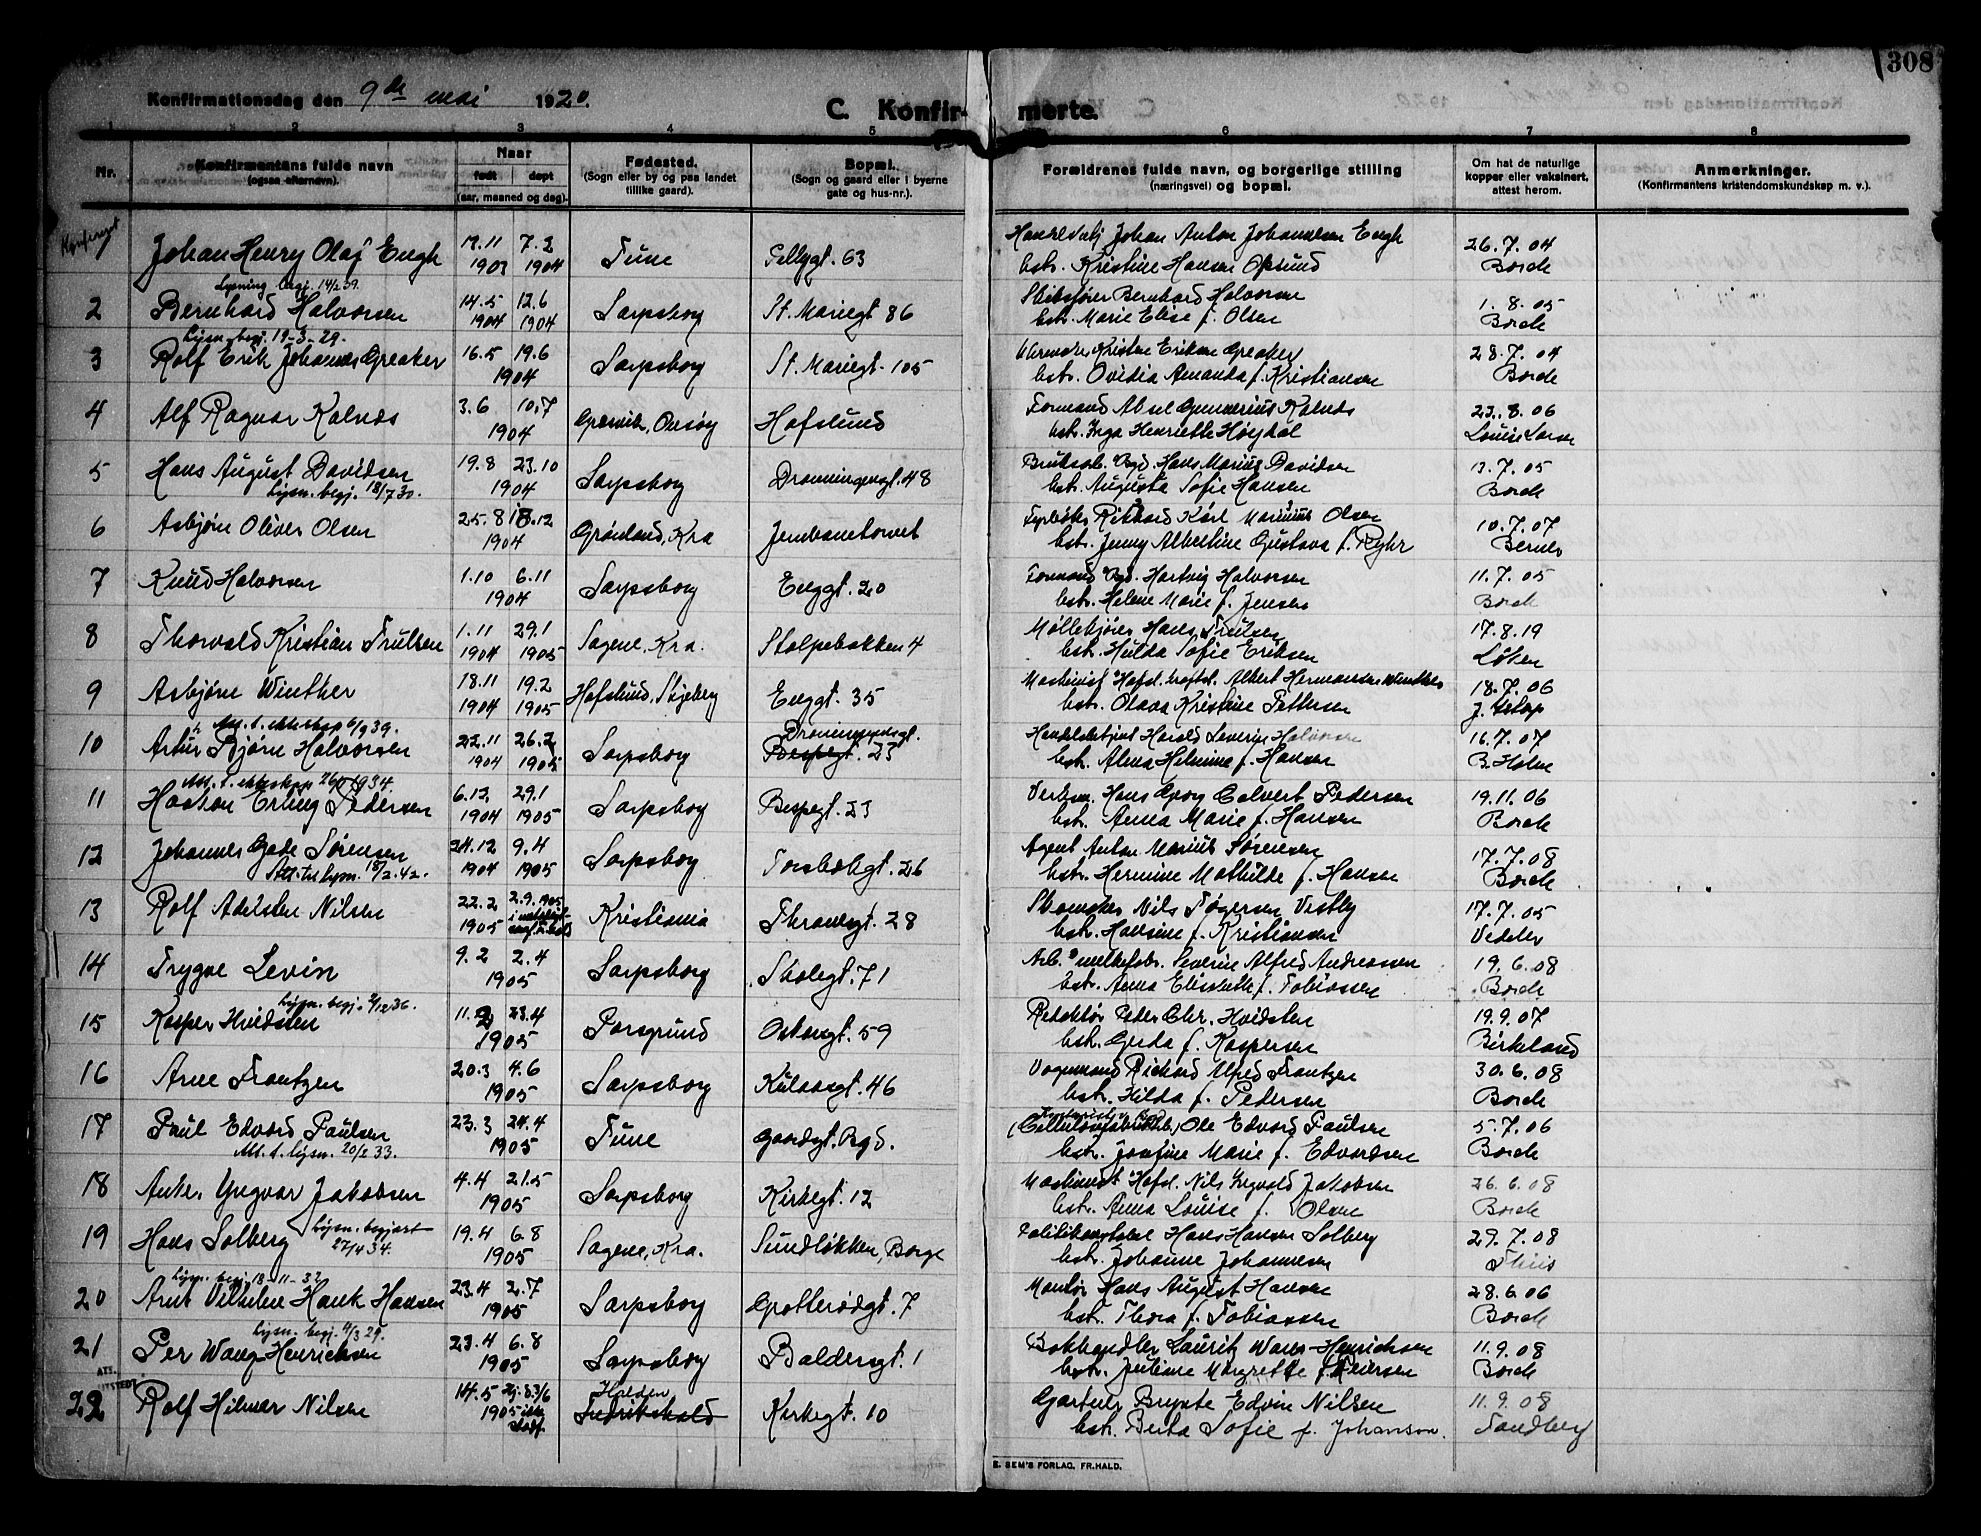 308
Konfirmationsdag den 9de mai 1920.
C. Konfir- merte.
1 2 3 4 5 6 7 8
Nr.
Konfirmantens fulde navn
(ogsaa efternavn).
Naar
født døpt
(aar, maaned og dag).
Fødested.
(Sogn eller by og paa landet
tillike gaard).
Bopæl.
(Sogn og gaard eller i byerne
gate og hus-nr.).
Forældrenes fulde navn, og borgerlige stilling
(næringsvei) og bopæl.
Om hat de naturlige
kopper eller vaksinert,
attest herom.
Anmerkninger.
(Konfirmantens kristendomskundskap m. v.).
1 Johan Henry Olaf Engh 7.2 Tune 63 Johan Anton Johannesen Engh 26.7.04
1904 hstr. Kristine Hansen Opsund Borch
Lysning begj. 14/2 39.
2 Bernhard Halvorsen 14.5 12.6 Sarpsborg St. Mariegt 86 Bernhard Halvorsen 1.8.05
1904 1904 hstr. Marie Elise f. Olsen Borch
Lysn. begj. 19-3-29.
3 Rolf Erik Johannes Greaker 16.5 19.6 Sarpsborg St. Mariegt. 105 Kristen Eriksen Greaker 28.7.04
1904 hstr. Ovidia Amanda f. Kristiansen Borch
4 Alf Ragnar Kalnæs 3.6 10.7 Onsøy Hafslund Formand Gunnerius Kalnæs 23.8.06
1904 hstr. Inga Henriette Høydal Louise Larsen
5 Hans August Davidsen 19.8 23.10 Sarpsborg Dronningensgt. 48 Hans Marius Davidsen 13.7.05
Lysn. begj. 18/7 30. 1904 hstr. Augusta Sofie Hansen Borch
6 Asbjørn Oliver Olsen 25.8 18.12 Grønland, Kra Jernbanetorvet Fyrbøter Rikhard Karl Marinius Olsen 10.7.07
1904 hstr. Jenny Albertine Gustava f. Berner
7 Knud Halvorsen 1.10 6.11 Sarpsborg Enggt. 20 Formand Hartvig Halvorsen 11.7.05
1904 hstr. Helene Marie f. Jensen Borch
8 Thorvald Kristian Trulsen 1.11 29.1 Sagene, Kra. Stolpebakken 4 Møllekjører Hans Trulsen 17.8.19
1904 1905 hstr. Hulda Sofie Eriksen Løken
9 Asbjørn Winther 18.11 19.2 Hafslund, Skjeberg Enggt. 35 Maskinist Albert Hermansen Winther 18.7.06
1904 1905 hstr. Olava Kristine Pettersen
Att. t. ekteskap 6/9 39.
10 Artur Bjørn Halvorsen 22.11 26.2 Sarpsborg Dronningensgt. 23 Harald Severin Halvorsen 16.7.07
1904 1905 hstr. Alma Helmine f. Hansen B. Holm
Att. t. ekteskap 1934.
11 Haakon Erling Pedersen 6.12 29.1 Sarpsborg Bispegt. 23 Hans Georg Calvert Pedersen 19.11.06
1904 1905 hstr. Anna Marie f. Hansen Borch
12 Johannes Gade Sørensen 24.12 9.4 Sarpsborg Torsbækgt. 26 Agent Anton Marius Sørensen 17.7.08
Att. til lysn. 18/2.42. 1904 1905 hstr. Hermine Mathilde f. Hansen Borch
13 Rolf Adelsten Nilsen 22.2 2.9.1905 Kristiania Thranesgt. 28 Skomaker Nils Tøgersen Vestby 17.7.05
1905 hstr. Hansine f. Kristiansen Vedeler
14 Trygve Levin 9.2 2.4 Sarpsborg Skolegt. 71 Arb. Severin Alfred Andreassen 19.6.08
1905 hstr. Anna Elisabeth f. Tobiassen Borch
15 Kasper Hvidsten 11.2 23.4 Porsgrund Oskarsgt. 59 Redaktør Peder Chr. Hvidsten 19.9.07
1905 hstr. Gerda f. Kaspersen Birkeland
16 Arne Frantzen 20.3 4.6 Sarpsborg Kulaasgt. 46 Vognmand Richard Alfred Frantzen 30.6.08
1905 hstr. Hilda f. Pedersen Borch
17 Paul Edvard Paulsen 23.3 24.4 Tune Gaardgt. Bgd. Ole Edvard Paulsen 5.7.06
Att. t. lysn. 20/2 33. 1905 hstr. Josefine Marie f. Edvardsen Borch
18 Anker Yngvar Jakobsen 4.4 21.5 Sarpsborg Kirkegt. 12 Maskinist Hafsl. Nils Ingvald Jakobsen 26.6.08
1905 hstr. Anna Louise f. Olsen Borch
19 Hans Solberg 19.4 6.8 Sagene, Kra. Sundløkken, Borge Politikonstabel Hans Hansen Solberg 29.7.08
Lysn. begjært 27/4 34. 1905 hstr. Johanne Johannesen Thiis
Lysn. begj. 18-11-32
20 Arnt Vilhelm Hauk Hansen 23.4 2.7 Sarpsborg Grotterødgt. 7 Montør Hans August Hansen 28.6.06
1905 hstr. Thora f. Tobiassen Borch
Lysn. begj. 4/3 29.
21 Per Wang-Henrichsen 23.4 6.8 Sarpsborg Baldersgt. 1 Bokhandler Lauritz Wang-Henrichsen 11.9.08
1905 hstr. Juliane Margrethe f. Petersen Borch
ATT. UTSTEDT
22 Rolf Hilmar Nilsen 14.5 Halden Kirkegt. 10 Gartner Brynte Edvin Nilsen 11.9.08
1905 Fredrikshald hstr. Berta Sofie f. Johanson. Sandberg
E. SEM'S FORLAG, FR.HALD.